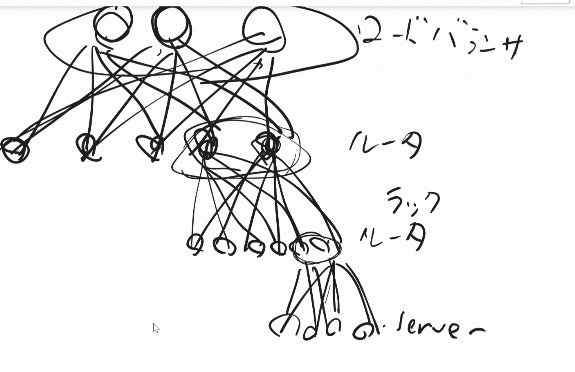 ロードバランサ
ルータ
ラック
ルータ
server